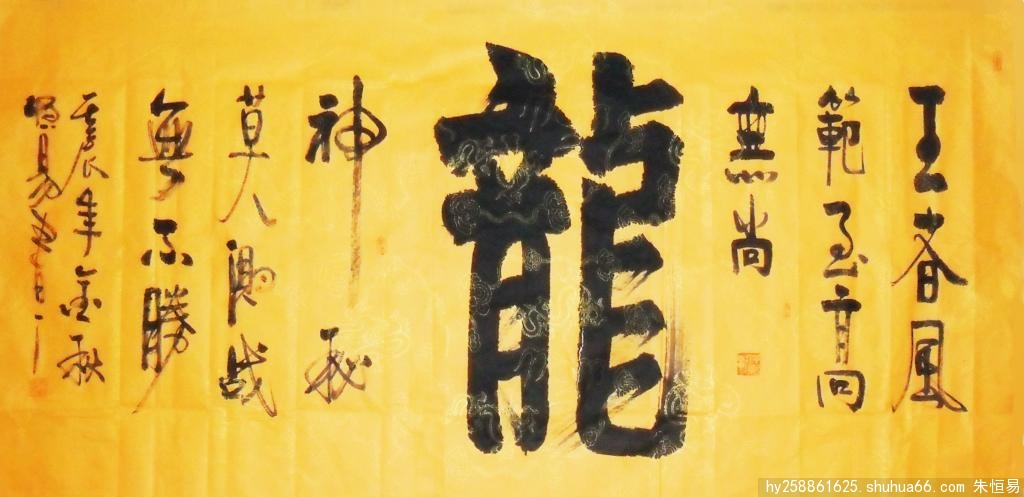 王者風
範至高
無尚
龍
神秘
莫測战
無不勝
壬辰年金秋
恒易
hy258861625.shuhua66.com 朱恒易